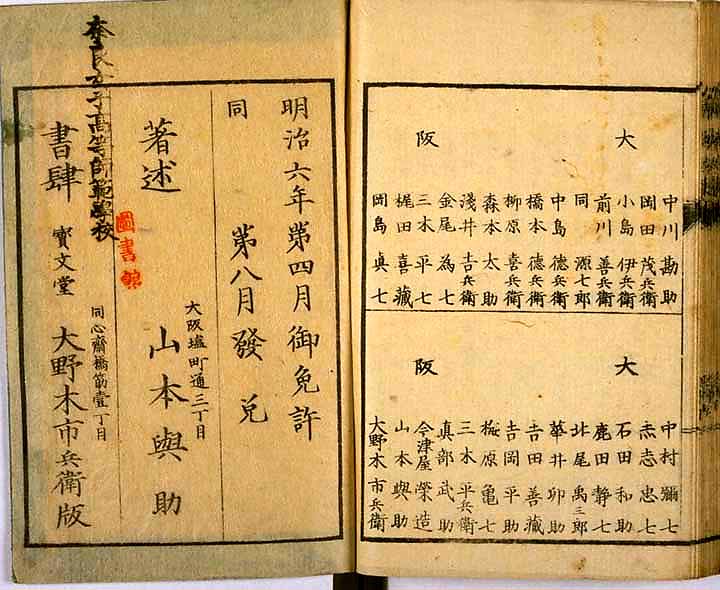 大阪
中川勘助
岡田茂兵衛
小島伊兵衛
前川善兵衛
同源七郎
中島德兵衛
橋本德兵衛
柳原喜兵衛
森本太助
淺井吉兵衛
金尾為七
三木平七
梶田喜藏
岡島真七
大阪
中村彌七
赤志忠七
石田和助
鹿田静七
北尾禹三郎
華井卯助
吉田善藏
吉岡平助
梅原亀七
三木平兵衛
真部武助
今津屋榮造
山本與助
大野木市兵衛
明治六年第四月御免許
同 第八月發兌
大阪塩町通三丁目
著述 山本與助
同心齋橋筋壹丁目
書肆 寶文堂 大野木市兵衛版
奈良女子高等師範學校
圖書館